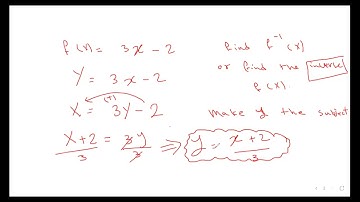 f(x) = 3x - 2
Y = 3x - 2
X = 3Y - 2
(+)
X+2 = 3y
3 3
⇒ y = x+2
3
find f⁻¹(x)
or find the inverse
f(x).
Make y the subject